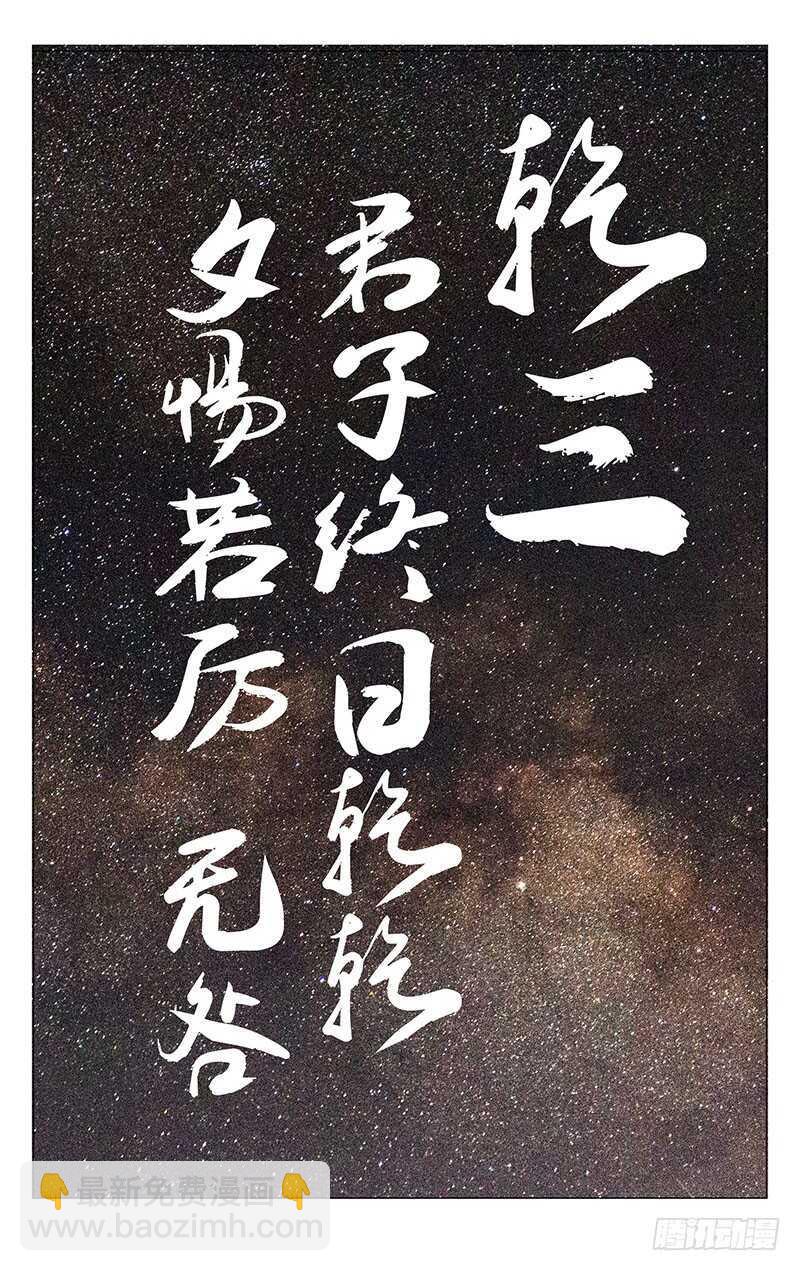 乾三
君子终日乾乾
夕惕若厉 无咎
最新免费漫画
www.baozimh.com
腾讯动漫